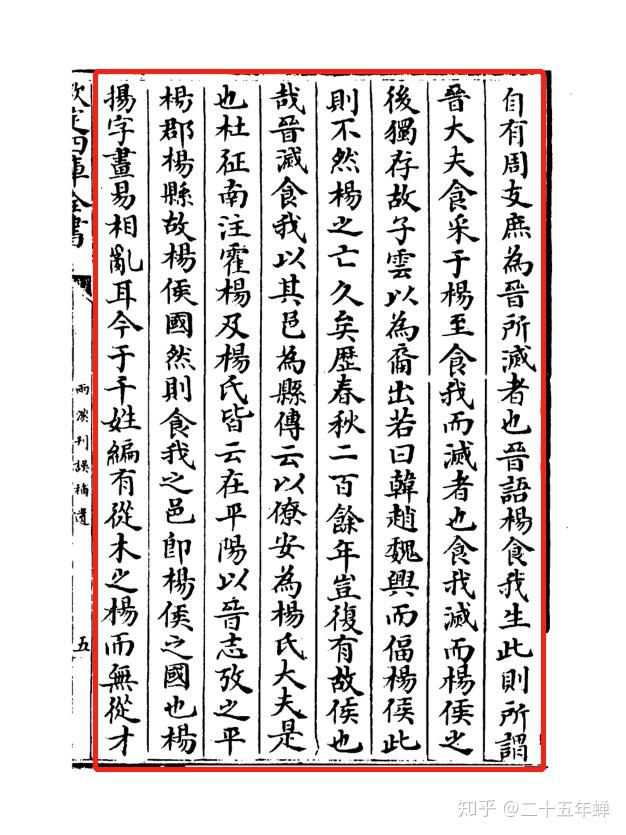 自有周支庶為晉所滅者也晉語楊食我生此則所謂
晉大夫食采于楊至食我而滅者也食我滅而楊侯之
後獨存故子雲以為裔出若曰韓趙魏興而偪楊侯此
則不然楊之亡久矣歷春秋二百餘年豈復有故侯也
哉晉滅食我以其邑為縣傳云以僚安為楊氏大夫是
也杜征南注霍楊及楊氏皆云在平陽以晉志攷之平
楊郡楊縣故楊侯國然則食我之邑即楊侯之國也楊
揚字畫易相亂耳今于千姓編有從木之楊而無從才
欽定四庫全書
兩漢刊誤補遺
五
知乎 @二十五年蝉